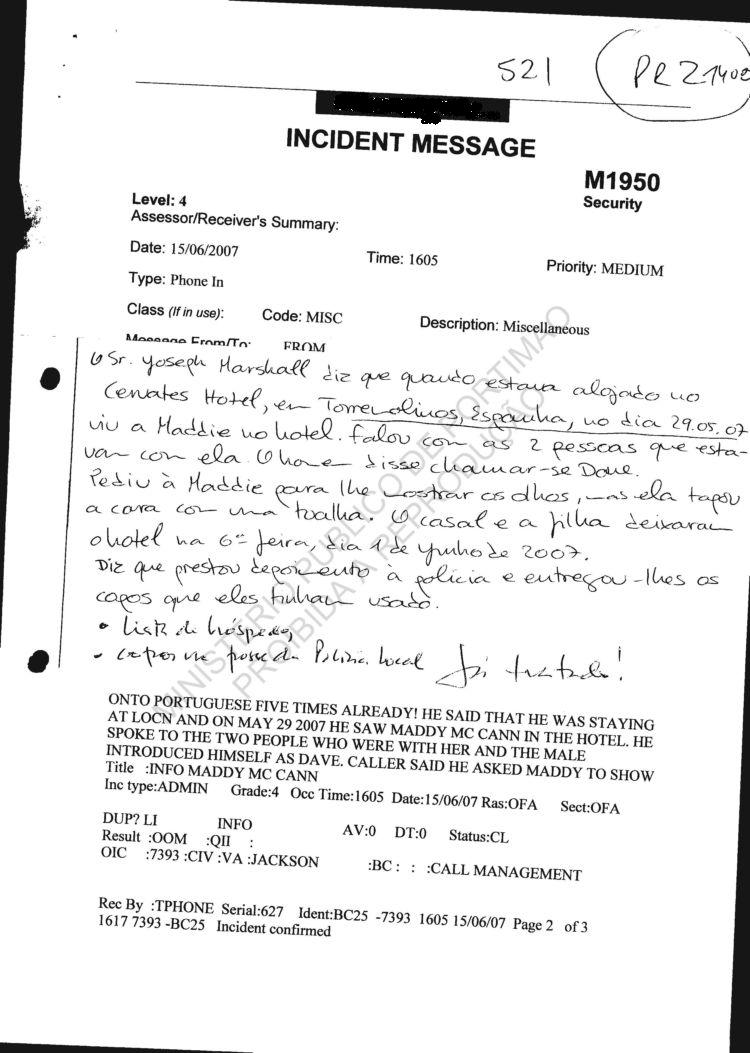 521
PR Z1408
INCIDENT MESSAGE
M1950
Security
Level: 4
Assessor/Receiver's Summary:
Date: 15/06/2007
Time: 1605
Priority: MEDIUM
Type: Phone In
Class (If in use):
Code: MISC
Description: Miscellaneous
Message From/To:
FROM
O Sr. Yoseph Marshall diz que quando estava alojado no
Cervates Hotel, em Torremolinos, Espanha, no dia 29.05.07
viu a Maddie no hotel. Falou com as 2 pessoas que esta-
vam com ela. O homem disse chamar-se Dave.
Pediu à Maddie para lhe mostrar os olhos, mas ela tapou
a cara com uma toalha. O casal e a filha deixaram
o hotel na 6ª feira, dia 1 de Junho de 2007.
Diz que prestou depoimento à polícia e entregou-lhes os
copos que eles tinham usado.
• Lista de hóspedes,
• copos na posse da Polícia Local Já tratado!
MINISTÉRIO PÚBLICO DE PORTIMÃO
PROIBILA A REPRODUÇÃO
ONTO PORTUGUESE FIVE TIMES ALREADY! HE SAID THAT HE WAS STAYING
AT LOCN AND ON MAY 29 2007 HE SAW MADDY MC CANN IN THE HOTEL. HE
SPOKE TO THE TWO PEOPLE WHO WERE WITH HER AND THE MALE
INTRODUCED HIMSELF AS DAVE. CALLER SAID HE ASKED MADDY TO SHOW
Title :INFO MADDY MC CANN
Inc type:ADMIN Grade:4 Occ Time:1605 Date:15/06/07 Ras:OFA Sect:OFA
DUP? LI INFO AV:0 DT:0 Status:CL
Result :OOM :QII :
OIC :7393 :CIV :VA :JACKSON :BC : : :CALL MANAGEMENT
Rec By :TPHONE Serial:627 Ident:BC25 -7393 1605 15/06/07 Page 2 of 3
1617 7393 -BC25 Incident confirmed